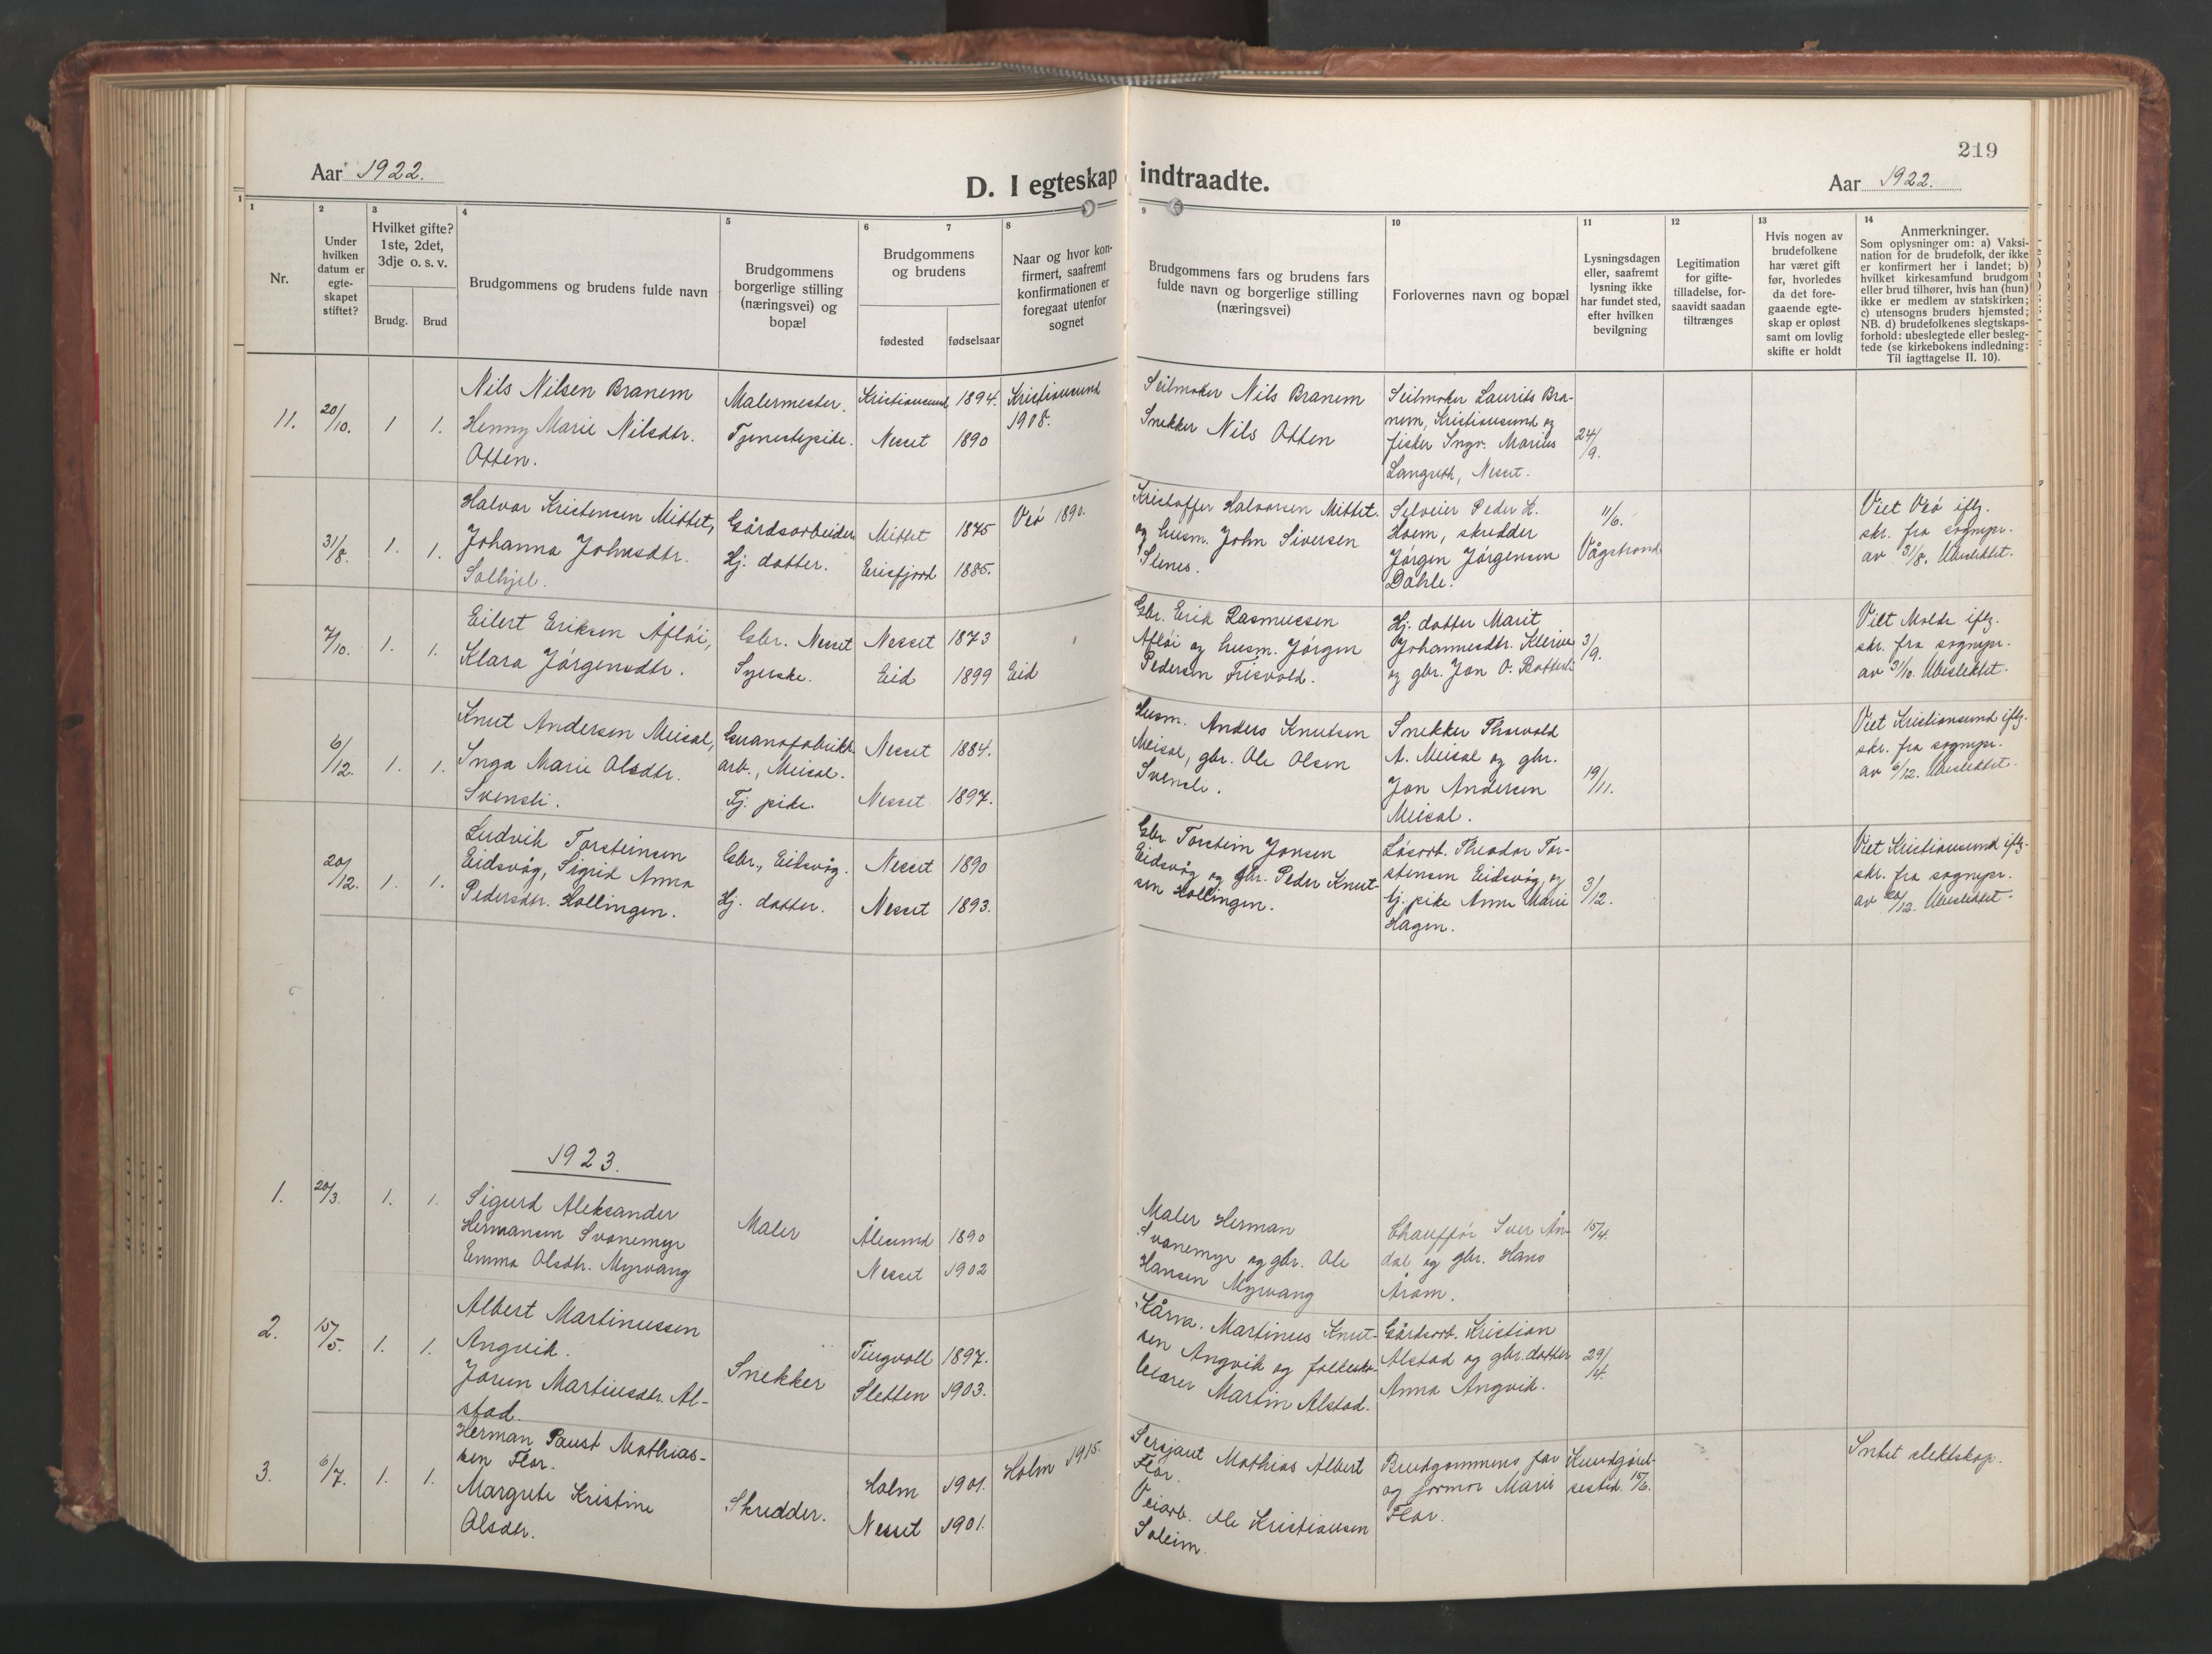 219
Aar 1922.
D. I egteskap indtraadte.
Aar 1922.
1
2
3
4
5
6
7
8
9
10
11
12
13
14
Nr.
Under
hvilken
datum er
egte-
skapet
stiftet?
Hvilket gifte?
1ste, 2det,
3dje o. s. v.
Brudg.
Brud
Brudgommens og brudens fulde navn
Brudgommens
borgerlige stilling
(næringsvei) og
bopæl
Brudgommens
og brudens
fødested
fødselsaar
Naar og hvor kon-
firmert, saafremt
konfirmationen er
foregaat utenfor
sognet
Brudgommens fars og brudens fars
fulde navn og borgerlige stilling
(næringsvei)
Forlovernes navn og bopæl
Lysningsdagen
eller, saafremt
lysning ikke
har fundet sted,
efter hvilken
bevilgning
Legitimation
for gifte-
tilladelse, for-
saavidt saadan
tiltrænges
Hvis nogen av
brudefolkene
har været gift
før, hvorledes
da det fore-
gaaende egte-
skap er opløst
samt om lovlig
skifte er holdt
Anmerkninger.
Som oplysninger om: a) Vaksi-
nation for de brudefolk, der ikke
er konfirmert her i landet; b)
hvilket kirkesamfund brudgom
eller brud tilhører, hvis han (hun)
ikke er medlem av statskirken;
c) utensogns bruders hjemsted;
NB. d) brudefolkenes slegtskaps-
forhold: ubeslegtede eller besleg-
tede (se kirkebokens indledning:
Til iagttagelse II. 10).
11. 20/10. 1 1.
Nils Nilsen Branem
Henny Marie Nilsdtr.
Otten.
Malermester.
Tjenestepike.
Kristiansund 1894.
Nesset 1890
Kristiansund
1908.
Seilmaker Nils Branem
Snekker Nils Otten
Seilmaker Laurits Bra-
nem, Kristiansund og
fisker Ingv. Marius
Langseth, Nesset.
24/9.
31/8. 1. 1.
Halvor Kristensen Mittet,
Johanna Johnsdtr.
Solhjel.
Gårdsarbeider
Hj. datter.
Mittet 1875
Eresfjord 1885.
Veø 1890.
Kristoffer Halvorsen Mittet.
og husm. John Siversen
Slenes.
Selveier Peder H.
Hoem, skredder
Jørgen Jørgensen
Dahle.
11/6.
Vågstrand
Viet Veø iflg.
skr. fra sognepr.
av 31/8. Ubeslektet.
7/10. 1. 1.
Eilert Eriksen Afløi,
Klara Jørgensdtr.
Gbr. Nesset
Syerske.
Nesset 1873
Eid 1899
Eid
Gbr. Erik Rasmussen
Afløi og husm. Jørgen
Pedersen Frisvold.
Hj. datter Marit
Johannesdtr.
og gbr. Jon O.
3/9.
Viet Molde iflg.
skr. fra sognepr.
av 31/10. Ubeslektet.
6/12. 1. 1.
Knut Andersen Meisal,
Inga Marie Olsdtr.
Svensli.
Guanofabrikk
arb., Meisal.
Tj. pike.
Nesset 1884.
Nesset 1897.
Husm. Anders Knutsen
Meisal, gbr. Ole Olsen
Svensli.
Snekker Thorvald
A. Meisal og gbr.
Jon Andersen
Meisal.
19/11.
Viet Kristiansund iflg.
skr. fra sognepr.
av 6/12. Ubeslektet.
20/12. 1. 1.
Ludvik Torsteinsen
Eidsvåg, Sigrid Anna
Pedersdtr. Hollingen.
Gbr., Eidsvåg.
Hj. datter.
Nesset 1890
Nesset 1893.
Gbr. Torstein Jonsen
Eidsvåg og gbr. Peder Knut-
sen Hollingen.
Løsarb. Theodor Tor-
stensen Eidsvåg, og
tj. pike Anne Marie
Hagen.
3/12.
Viet Kristiansund iflg.
skr. fra sognepr.
av 20/12. Ubeslektet.
1923.
1. 20/3. 1. 1.
Sigurd Aleksander
Hermansen Svanemyr
Emma Olsdtr. Myrvang
Maler
Ålesund 1890
Nesset 1902
Maler Herman
Svanemyr og gbr. Ole
Hansen Myrvang
Chauffør Iver An-
dal og gbr. Hans
Aram.
15/4.
2. 15/5. 1. 1.
Albert Martinussen
Angvik.
Jorun Martinsdtr. Al-
stad.
Snekker
Tingvoll 1897.
Sletten 1903.
Martinus Knut-
sen Angvik og folkesko-
lelærer Martin Alstad.
Gårdsarb. Kristian
Alstad og gbr. datter
Anna Angvik.
29/4.
3. 6/7. 1. 1.
Herman Paust Mathias-
sen Flor.
Margrete Kristine
Olsdtr.
Skredder.
Holm 1901.
Nesset 1901.
Holm 1915.
Sersjant Mathias Albert
Flor.
Veiarb. Ole Kristiansen
Soleim.
Brudgommens far
og formor Marie
Flor.
Kundgjørel-
sestid. 15/6.
Intet slektskap.